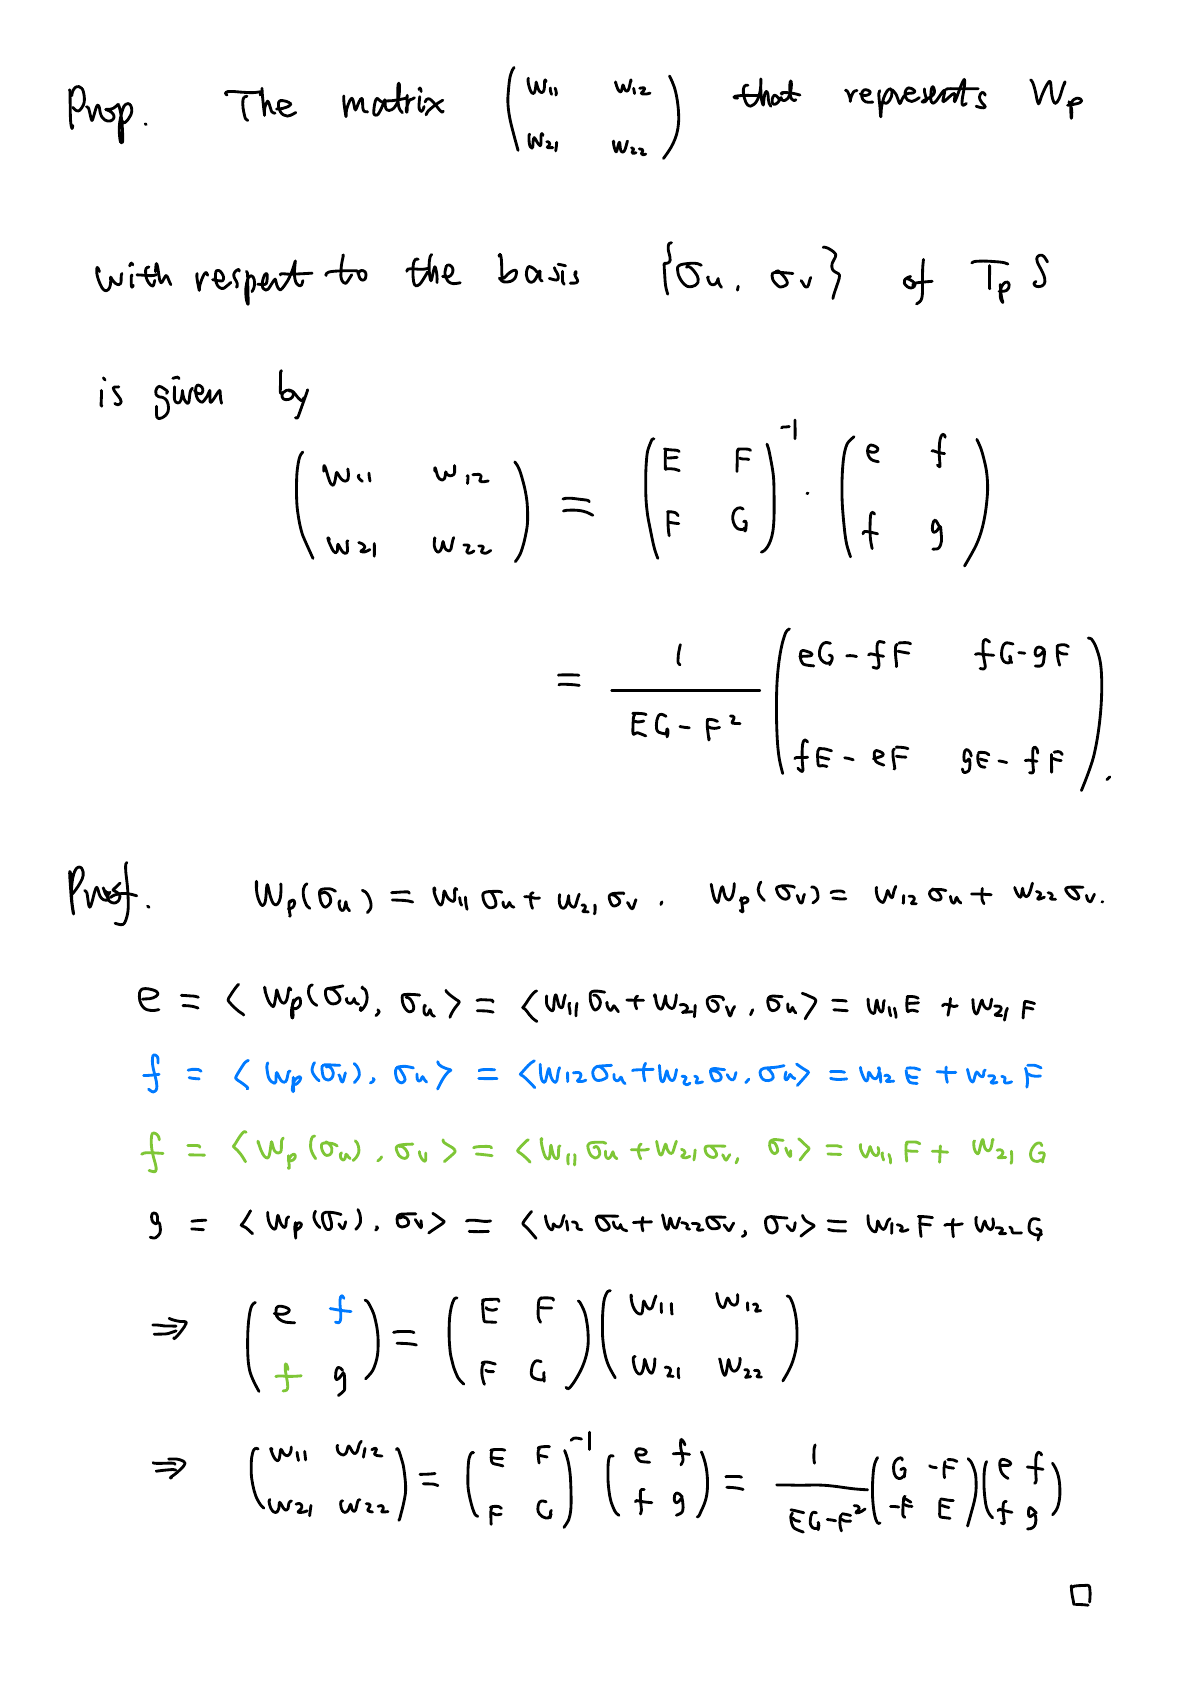 Prop. The matrix $\begin{pmatrix} w_{11} & w_{12} \\ w_{21} & w_{22} \end{pmatrix}$ that represents $W_p$
with respect to the basis $\{\sigma_u, \sigma_v\}$ of $T_p S$
is given by
$\begin{pmatrix} w_{11} & w_{12} \\ w_{21} & w_{22} \end{pmatrix} = \begin{pmatrix} E & F \\ F & G \end{pmatrix}^{-1} \cdot \begin{pmatrix} e & f \\ f & g \end{pmatrix}$
$= \frac{1}{EG - F^2} \begin{pmatrix} eG - fF & fG - gF \\ fE - eF & gE - fF \end{pmatrix}.$
Proof. $W_p(\sigma_u) = w_{11} \sigma_u + w_{21} \sigma_v$. $W_p(\sigma_v) = w_{12} \sigma_u + w_{22} \sigma_v$.
$e = \langle W_p(\sigma_u), \sigma_u \rangle = \langle w_{11} \sigma_u + w_{21} \sigma_v, \sigma_u \rangle = w_{11} E + w_{21} F$
$f = \langle W_p(\sigma_v), \sigma_u \rangle = \langle w_{12} \sigma_u + w_{22} \sigma_v, \sigma_u \rangle = w_{12} E + w_{22} F$
$f = \langle W_p(\sigma_u), \sigma_v \rangle = \langle w_{11} \sigma_u + w_{21} \sigma_v, \sigma_v \rangle = w_{11} F + w_{21} G$
$g = \langle W_p(\sigma_v), \sigma_v \rangle = \langle w_{12} \sigma_u + w_{22} \sigma_v, \sigma_v \rangle = w_{12} F + w_{22} G$
$\Rightarrow \begin{pmatrix} e & f \\ f & g \end{pmatrix} = \begin{pmatrix} E & F \\ F & G \end{pmatrix} \begin{pmatrix} w_{11} & w_{12} \\ w_{21} & w_{22} \end{pmatrix}$
$\Rightarrow \begin{pmatrix} w_{11} & w_{12} \\ w_{21} & w_{22} \end{pmatrix} = \begin{pmatrix} E & F \\ F & G \end{pmatrix}^{-1} \begin{pmatrix} e & f \\ f & g \end{pmatrix} = \frac{1}{EG - F^2} \begin{pmatrix} G & -F \\ -F & E \end{pmatrix} \begin{pmatrix} e & f \\ f & g \end{pmatrix}$
□